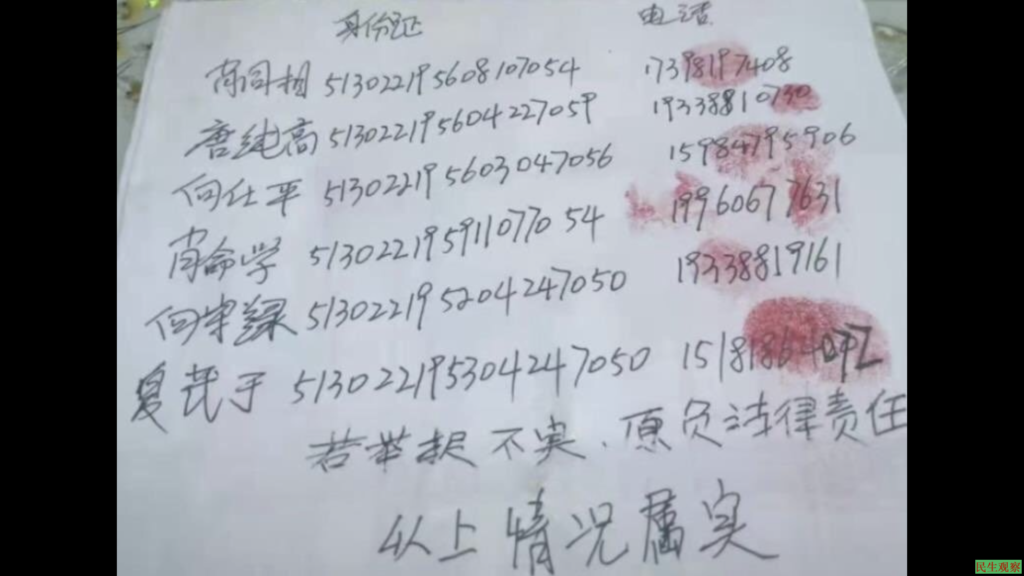 身份证 电话
肖同相 513022195608107054 17398197408
唐纯高 513022195604227059 19338810730
向仕平 513022195603047056 15984795906
肖命学 513022195911077054 19960677631
向守 513022195204247050 19338819161
夏 513022195304247050
若举报不实、原负法律责任
以上情况属实
民生观察